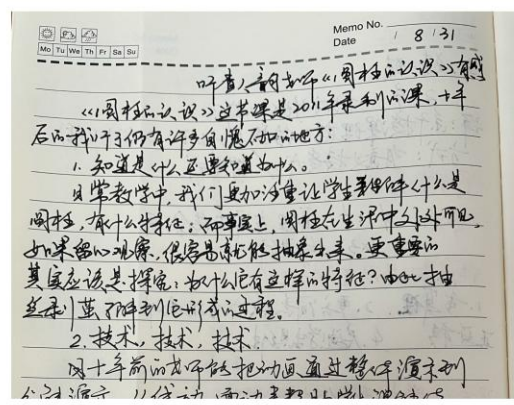 Memo No.
Mo Tu We Th Fr Sa Su
Date / 8 / 31
听老师《圆柱的认识》有感
《圆柱的认识》这节课是2011年录制的课,十年
后的我们于仍有许多自愧不如的地方:
1. 知道是什么还要知道为什么。
日常教学中,我们更加注重让学生掌握什么是
圆柱,有什么特征;而事实上,圆柱在生活中处处可见,
如果留心观察,很容易就能抽象出来。更重要的
其实应该是探究:为什么它有这样的特征?由此抽
到它形成的过程。
2. 技术,技术,技术
因十年前的老师能把动画通过整体演示到